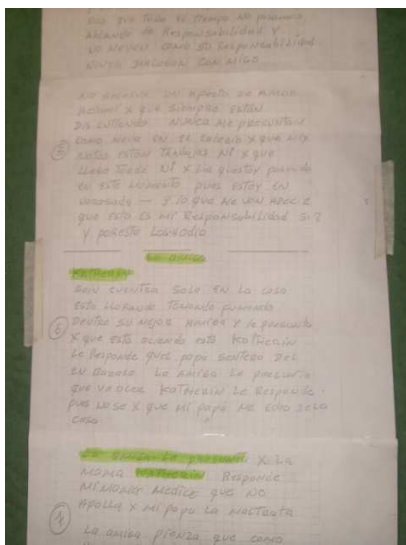 que todo el tiempo no pasamos
hablando de Responsabilidad y
no meven como su Responsabilidad
nunca dialogan con migo
no recibi un afecto de amor
X que siempre están
discutiendo nunca me preguntan
como meva en el colegio X que mis
notas están tan bajas ni X que
llego tarde ni X que estoy pasando
en este momento pues estoy en
embarasada — y lo que me van a decir
que esto es mi Responsabilidad si?
y por esto los odio
La amiga
Katherin
se encuentra sola en la casa
esta llorando tomando fumando
6
Dentro su mejor amiga y le pregunta
X que esta llorando esto Katherin
Le Responde que el papá sentero del
en baraso Le amiga Le pregunta
que va aser Katherin Le Responde
pues nose X que mi papá me echo de la
casa
La amiga Le pregunta X La
mama Katherin Responde
mi mamá medice que no
7
apolla X mi papá la maltrata
La amiga pienza que como